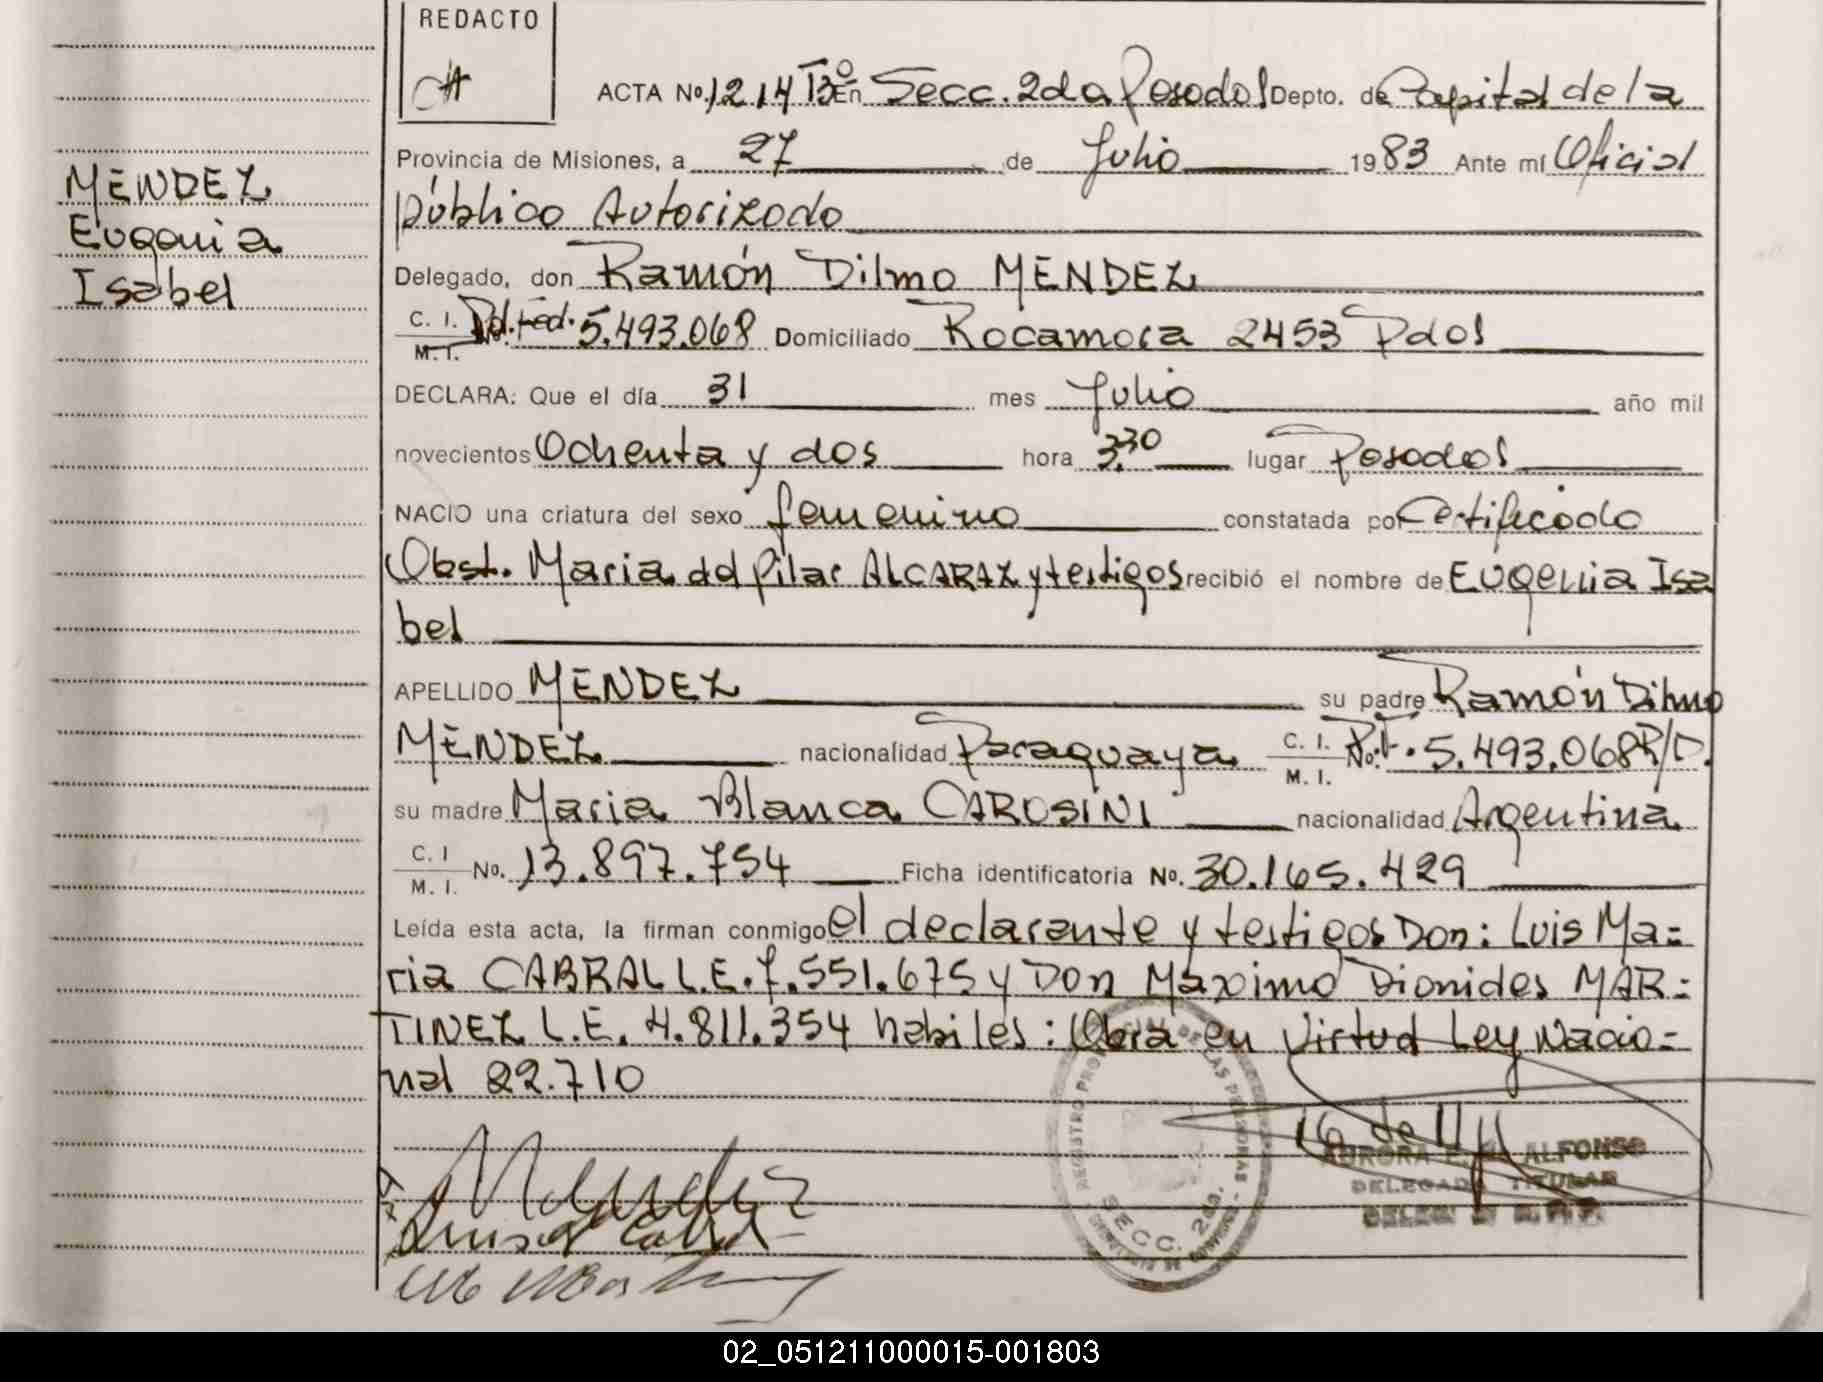 REDACTO
ACTA No. 1214 Tº 13 En Secc. 2da Posadas Depto. de Capital de la
Provincia de Misiones, a 27 de Julio 1983 Ante mí Oficial
público Autorizado
MENDEZ
Eugenia
Isabel
Delegado, don Ramón Dilmo MENDEZ
C. I. M. I. Pol. Fed. 5.493.068 Domiciliado Rocamora 2453 Pdas
DECLARA: Que el día 31 mes Julio año mil
novecientos Ochenta y dos hora 3.30 lugar Posadas
NACIO una criatura del sexo femenino constatada por Certificado
Obst. Maria del Pilar ALCARAZ y testigos recibió el nombre de Eugenia Isa
bel
APELLIDO MENDEZ su padre Ramón Dilmo
MENDEZ nacionalidad Paraguaya C. I. M. I. No. P.F. 5.493.068 R/P.
su madre Maria Blanca CAROSINI nacionalidad Argentina
C. I M. I. No. 13.897.754 Ficha identificatoria No. 30.165.429
Leída esta acta, la firman conmigo el declarante y testigos Don: Luis Ma=
ria CABRAL L.E. 7.551.675 y Don Maximo Dionides MAR=
TINEZ L.E. 4.811.354 habiles: Obra en Virtud Ley Nacio=
nal 22.710
16 de 11
AURORA E. ALFONSO
DELEGADA TITULAR
SECC. 2da.
02_051211000015-001803